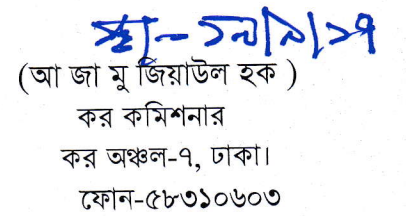 স্বা/- ১৯/৯/১৭
(আ জা মু জিয়াউল হক )
কর কমিশনার
কর অঞ্চল-৭, ঢাকা।
ফোন-৫৮৩১০৬০৩